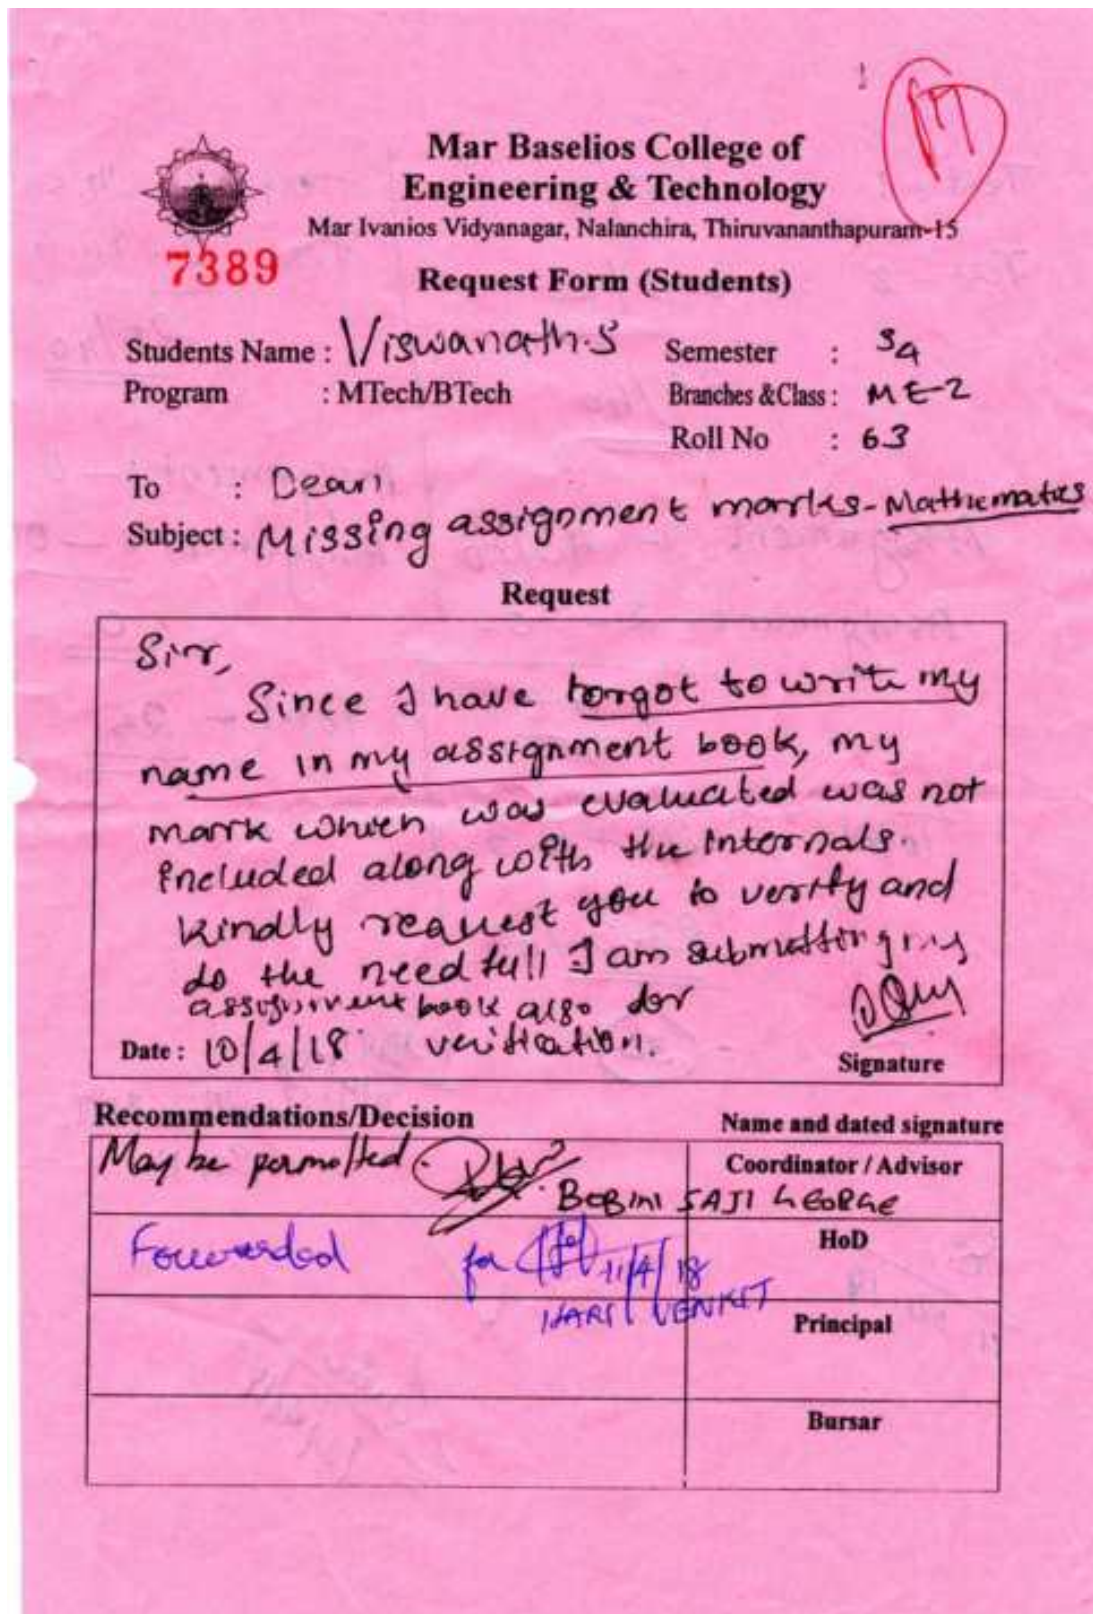 Mar Baselios College of
Engineering & Technology
Mar Ivanios Vidyanagar, Nalanchira, Thiruvananthapuram-15
7389
Request Form (Students)
Students Name : Viswanath.S
Semester : S4
Program : MTech/BTech
Branches &Class : ME-2
Roll No : 63
To : Dean
Subject : Missing assignment marks - Mathematics
Request
Sir,
Since I have forgot to write my
name in my assignment book, my
mark which was evaluated was not
included along with the internals.
kindly request you to verify and
do the needfull I am submitting my
assignment book also for
Date : 10/4/18 verification.
Signature
Recommendations/Decision
Name and dated signature
May be permitted.
Coordinator / Advisor
BOBINI SAJI GEORGE
Forwarded for 11/4/18
HoD
HARI VENKIT
Principal
Bursar